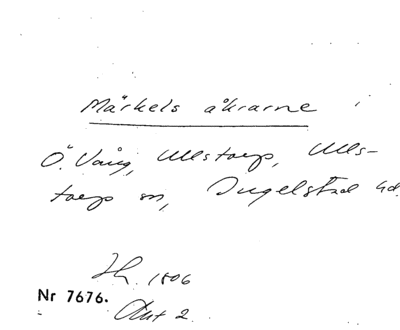 Märkels åkrarne
Ö. Vång, Ullstorp, Ulls-
torps sn, Ingelstad hd.
Sk. 1806
Nr 7676.
Akt 2